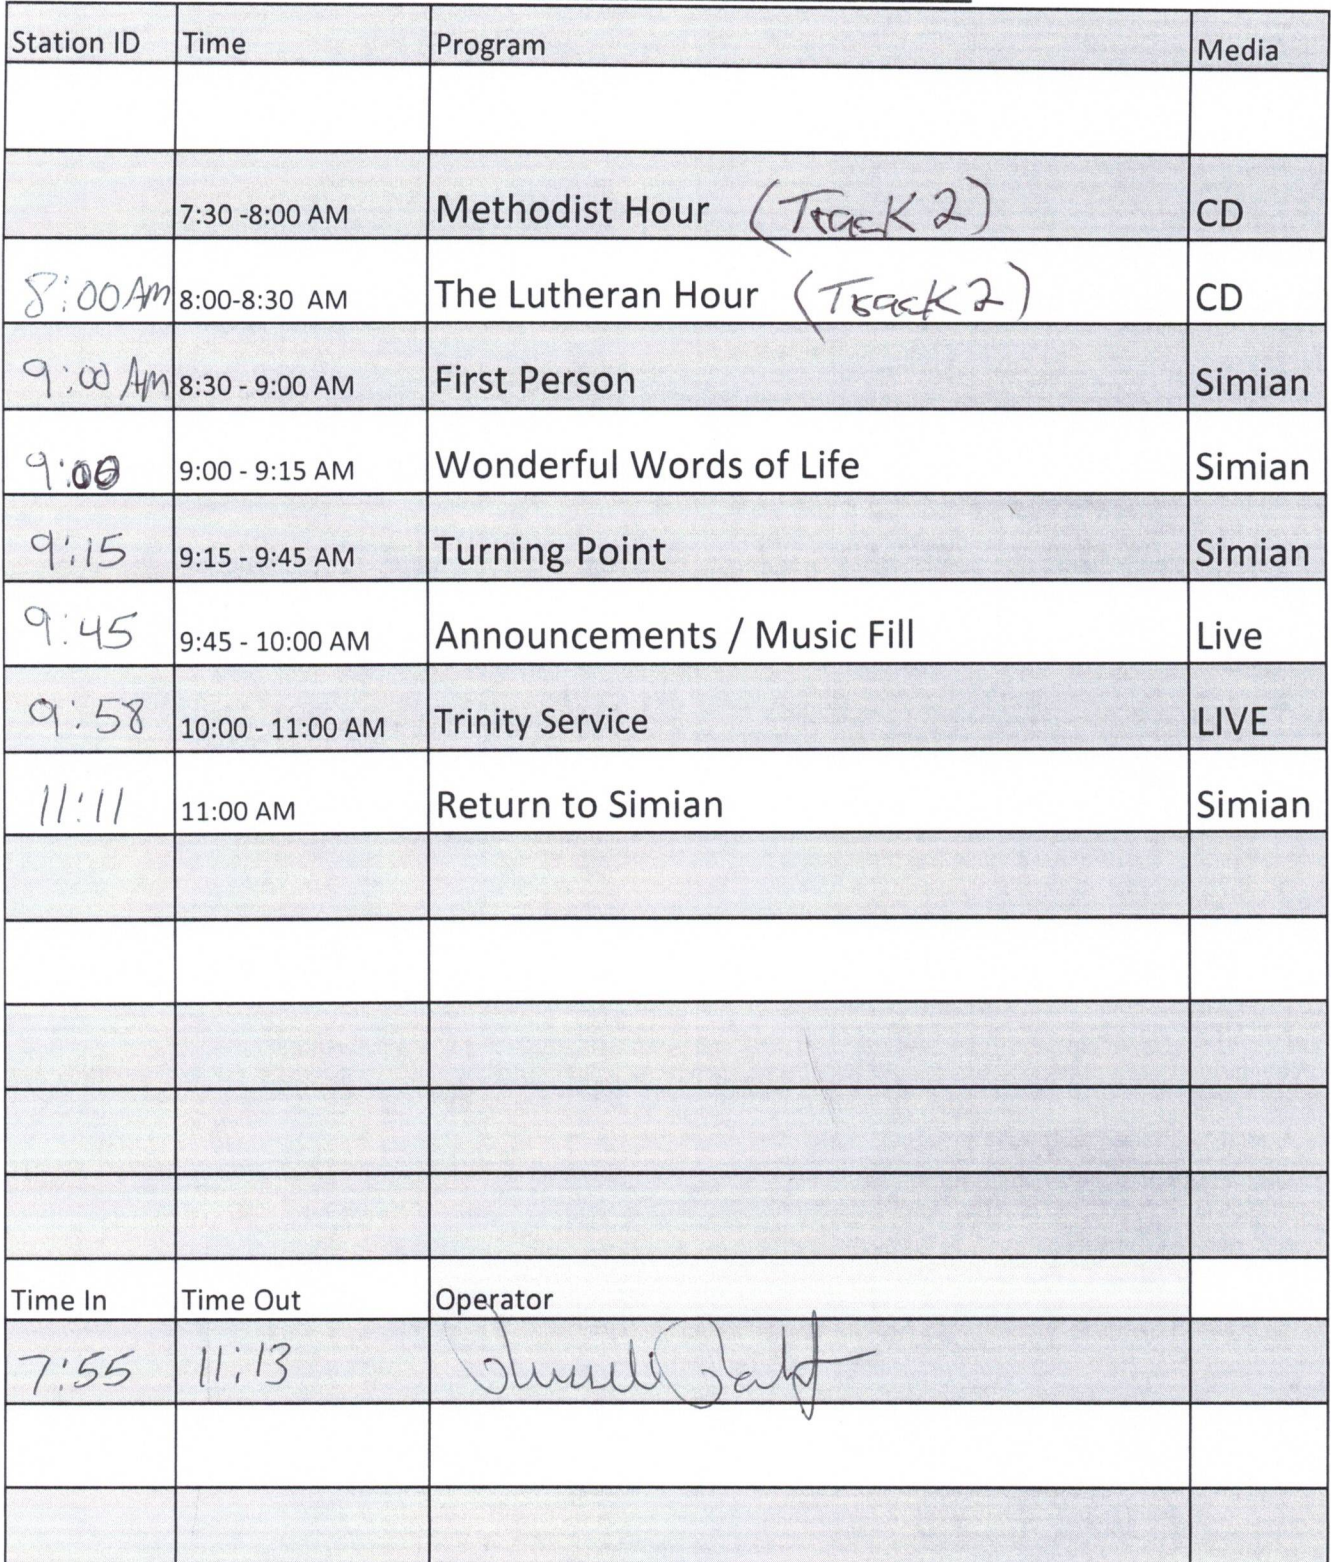 Station ID Time Program Media
7:30 -8:00 AM Methodist Hour (Track 2) CD
8:00 Am 8:00-8:30 AM The Lutheran Hour (Track 2) CD
9:00 Am 8:30 - 9:00 AM First Person Simian
9:00 9:00 - 9:15 AM Wonderful Words of Life Simian
9:15 9:15 - 9:45 AM Turning Point Simian
9:45 9:45 - 10:00 AM Announcements / Music Fill Live
9:58 10:00 - 11:00 AM Trinity Service LIVE
11:11 11:00 AM Return to Simian Simian
Time In Time Out Operator
7:55 11:13